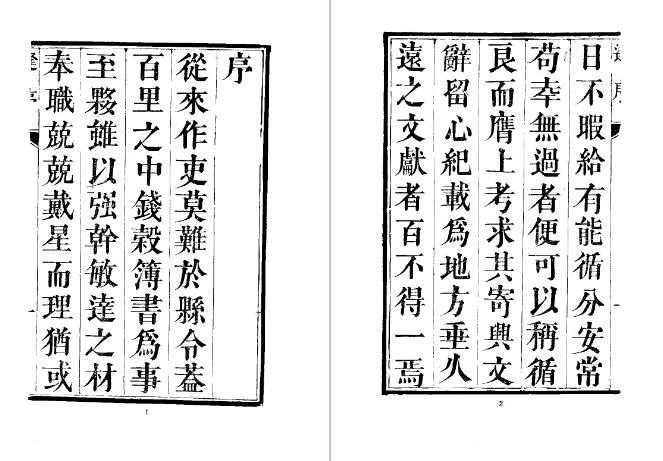 序
從來作吏莫難於縣令葢
百里之中錢榖簿書為事
至夥雖以强幹敏達之材
奉職兢兢戴星而理猶或
1
日不暇給有能循分安常
苟幸無過者便可以稱循
良而膺上考求其寄興文
辭留心紀載為地方垂久
遠之文獻者百不得一焉
2